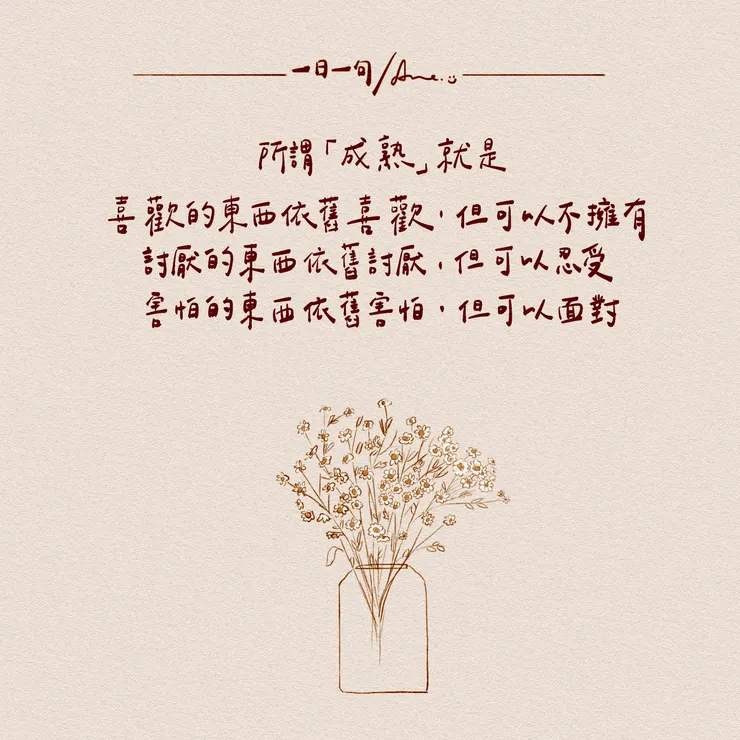 一日一句/Ame.
所謂「成熟」就是
喜歡的東西依舊喜歡，但可以不擁有
討厭的東西依舊討厭，但可以忍受
害怕的東西依舊害怕，但可以面對